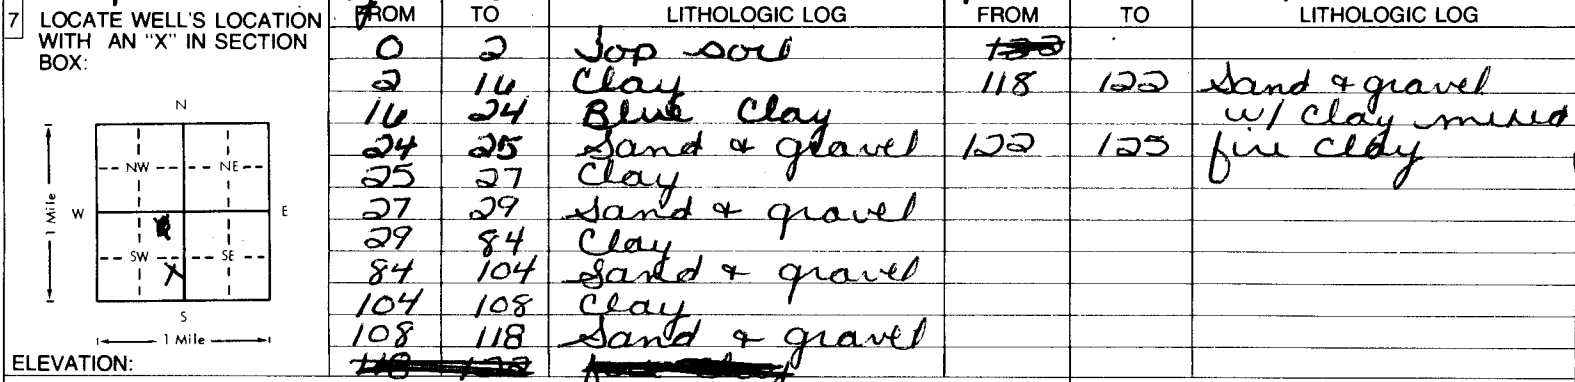 7 LOCATE WELL'S LOCATION WITH AN "X" IN SECTION BOX:
N
NW NE
W E
SW SE
X
S
1 Mile
1 Mile
ELEVATION:
FROM TO LITHOLOGIC LOG FROM TO LITHOLOGIC LOG
0 2 Top soil
2 16 Clay 118 122 Sand & gravel
16 24 Blue Clay w/ Clay mixed
24 25 Sand & gravel 122 125 fire clay
25 27 Clay
27 29 Sand & gravel
29 84 Clay
84 104 Sand & gravel
104 108 Clay
108 118 Sand & gravel